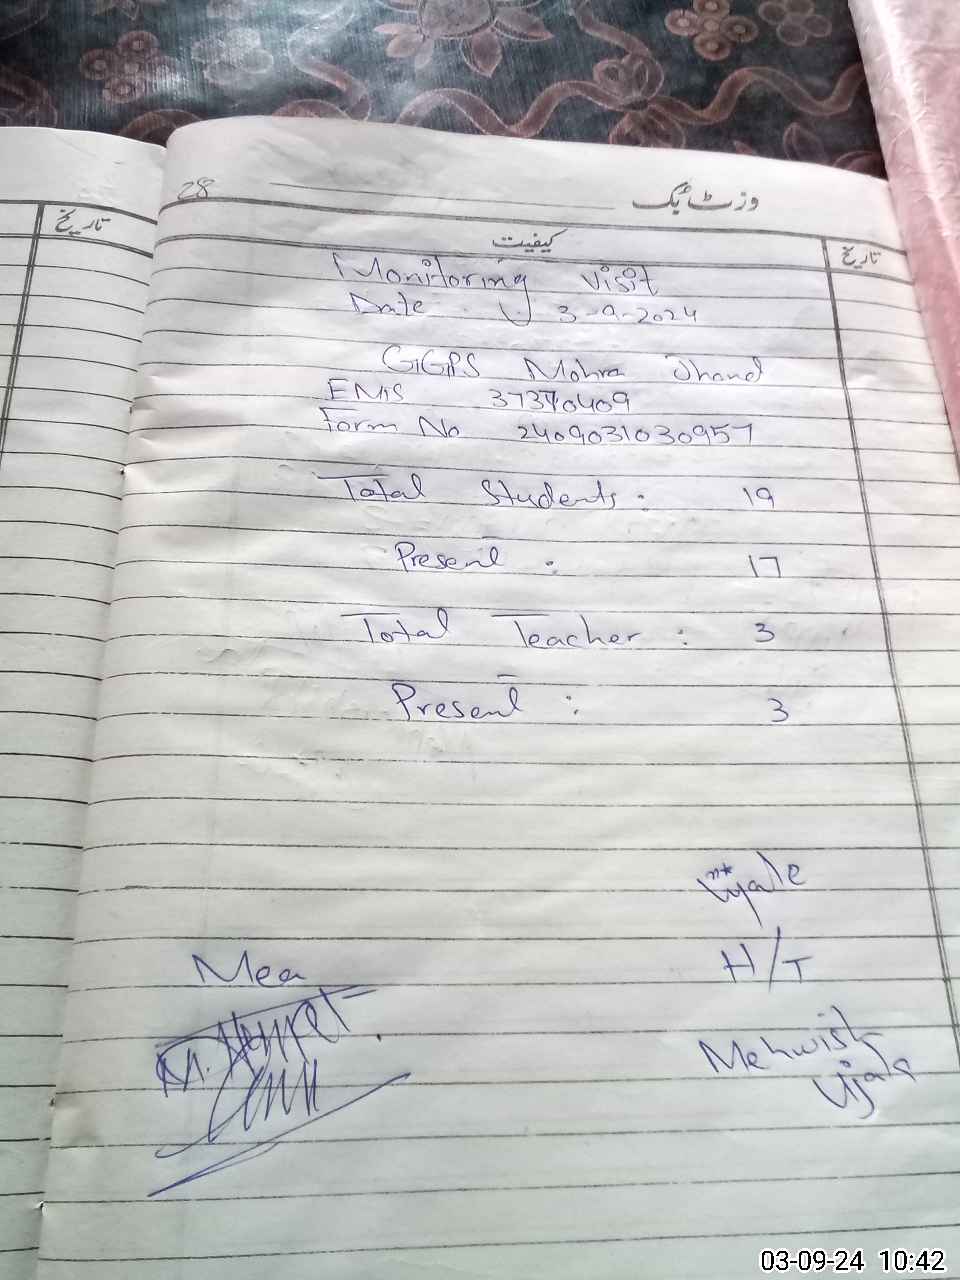 تاریخ
28
وزٹ بک
کیفیت
تاریخ
Monitoring visit
Date 3-9-2024
GGPS Mohra Jhand
EMIS 37340409
Form No 2409031030957
Total Students : 19
Present : 17
Total Teacher : 3
Present : 3
H/T
Mea
Mehwish
M.
03-09-24 10:42